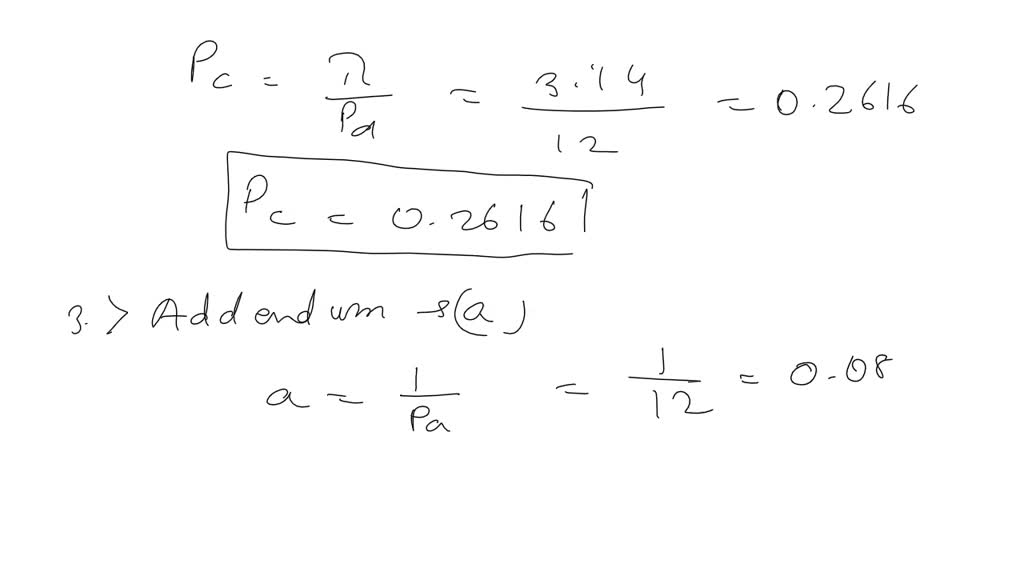 Pc = π/Pd = 3.14/12 = 0.2616
Pc = 0.2616
3.> Addendum →(a)
a = 1/Pd = 1/12 = 0.08